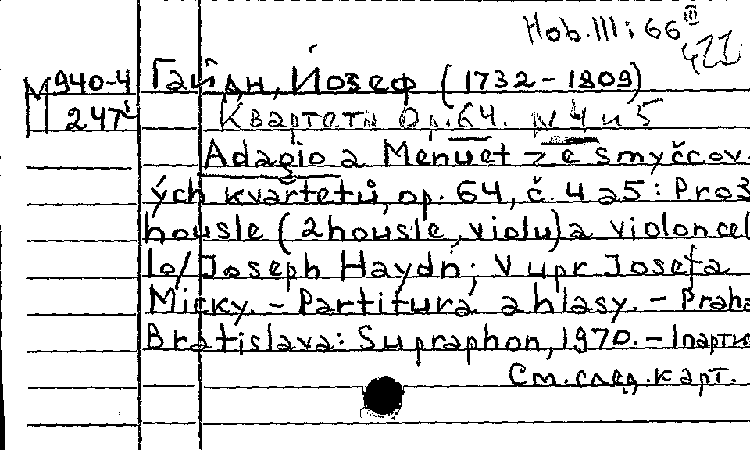 Hob. III: 66 III
422
М 940-4 Гайдн, Йозеф (1732-1809)
247 Квартеты Ор. 64. №4 и 5
Adagio a Menuet ze smyčcov-
ých kvartetů, op. 64, č. 4 a 5: Pro 3
housle (2 housle, violu) a violoncel
lo/Joseph Haydn; V upr Josefa
Micky. - Partitura a hlasy. - Praha
Bratislava: Supraphon, 1970. - 1 парти
См. след. карт.